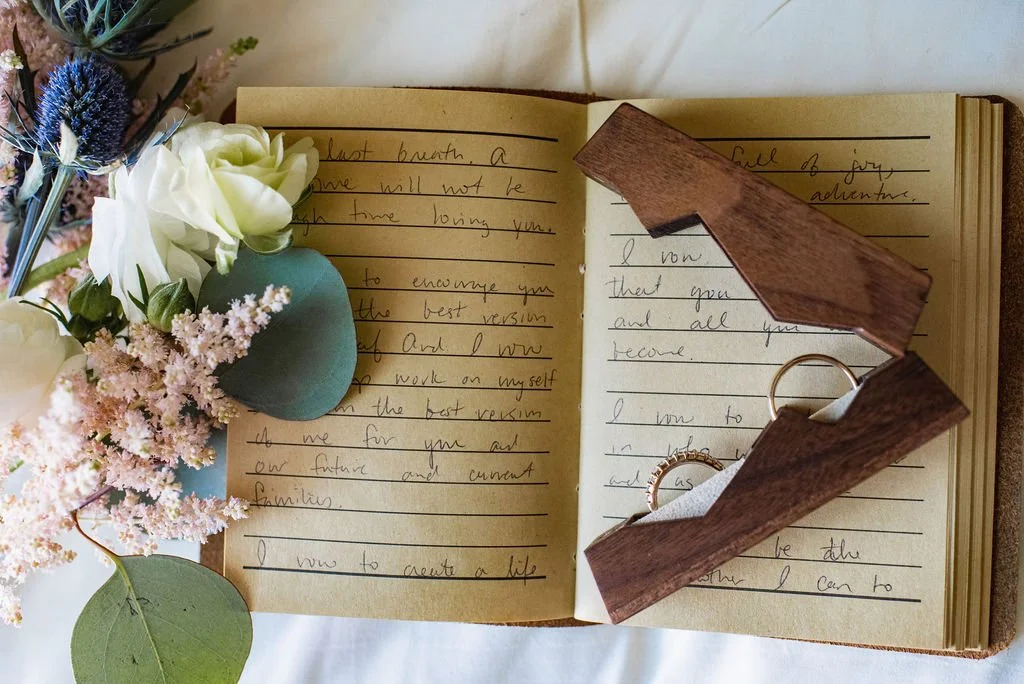 last breath. A
will not be
time loving you.
to encourage you
the best version
And I vow
work on myself
the best version
of me for you and
our future and current
families.
I vow to create a life
full of joy,
adventure.
I vow
that you
and all you
become.
I vow to
in
and as
be the
I can to